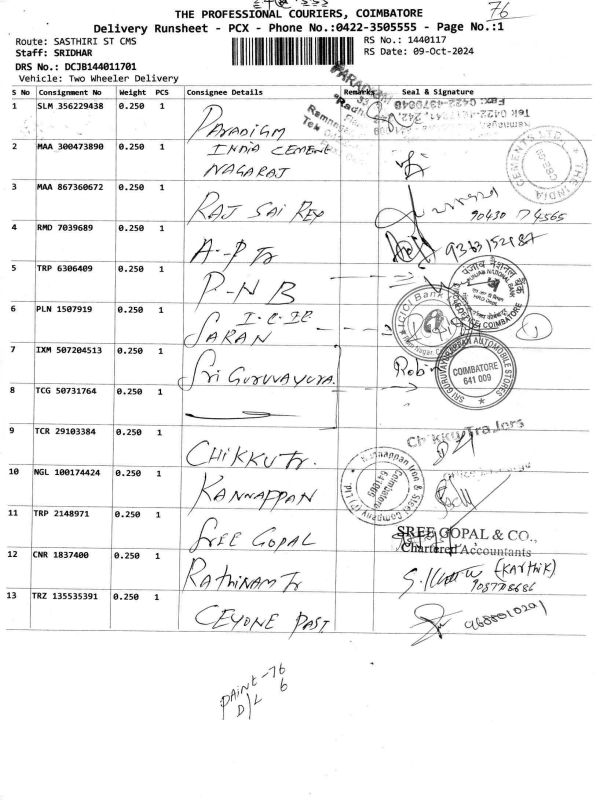 THE PROFESSIONAL COURIERS, COIMBATORE
76
Delivery Runsheet - PCX - Phone No.:0422-3505555 - Page No.:1
Route: SASTHIRI ST CMS
RS No.: 1440117
Staff: SRIDHAR
RS Date: 09-Oct-2024
DRS No.: DCJB144011701
Vehicle: Two Wheeler Delivery
S No Consignment No Weight PCS Consignee Details Remarks Seal & Signature
1 SLM 356229438 0.250 1 PARADIGM
2 MAA 300473890 0.250 1 INDIA CEMENT
NAGARAJ
THE INDIA CEMENTS LTD.
3 MAA 867360672 0.250 1 RAJ SAI REY
90430 74565
4 RMD 7039689 0.250 1 A-P Tr
5 TRP 6306409 0.250 1 P-N B
पंजाब नैशनल बैंक
PUNJAB NATIONAL BANK
COIMBATORE
6 PLN 1507919 0.250 1 I.C.IC
SARAN
ICICI Bank
7 IXM 507204513 0.250 1 Sri GURUVAYURA.
Robin
SRI GURUVAYURAPPAN AUTOMOBILE STORES
COIMBATORE
641 009
8 TCG 50731764 0.250 1
9 TCR 29103384 0.250 1 CHIKKU Tr.
Chikku Traders
10 NGL 100174424 0.250 1 KANNAPPAN
Kannappan Iron & Steel Company (P) LTD
Coimbatore
641009
11 TRP 2148971 0.250 1 SREE GOPAL
SREE GOPAL & CO.,
Chartered Accountants
12 CNR 1837400 0.250 1 Rathinam Tr
(KARTHIK)
9087708686
13 TRZ 135535391 0.250 1 CEYONE PAST.
9688010201
PAINT-76
D/L 6